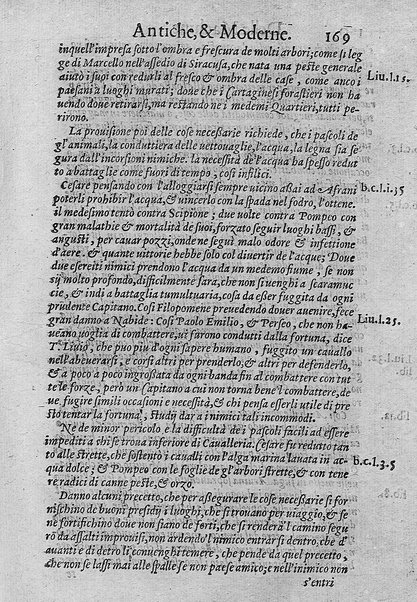 Antiche, & Moderne. 169
inquell'impresa sotto l'ombra e frescura de molti arbori; come si leg
ge di Marcello nell'assedio di Siracusa, che nata una peste generale
aiutò i suoi con redurli al fresco & ombra delle case, come anco i
paesani a luoghi murati; doue che i Cartaginesi forastieri non ha
uendo doue retirarsi, ma restando ne i medemi Quartieri, tutti pe-
rirono.
Liu.l.15.
La prouisione poi delle cose necessarie richiede, che i pascoli de
gl'animali, la conduttiera delle uettouaglie, l'acqua, la legna sia se
gura dall'incorsioni nimiche. la necessità de l'acqua ha spesso redut
to a battaglie come fuori di tempo, così infilici.
Cesare pensando con l'alloggiarsi sempre uicino assai ad Afrani
poterli prohibir l'acqua, & uincerlo con la spada nel fodro, l'ottene.
b.c.l.i.35
il medesimo tentò contra Scipione; due uolte contra Pompeo con
gran malathie & mortalità de suoi, forzato seguir luoghi bassi, &
angusti, per cauar pozzi, onde ne seguì malo odore & infettione
d'aere. & quante uittorie hebbe solo col diuertir de l'acque; Doue
due eserciti nimici prendono l'acqua da un medemo fiume, se non
sij molto profondo, difficilmente sara, che non si uenghi a scaramuc
cie, & indi a battaglia tumultuaria, cosa da esser fuggita da ogni
prudente Capitano. Così Filopomene preuedendo douer auenire, fece
gran danno a Nabide: Così Paolo Emilio, & Perseo, che non ha-
ueano uoglia di combattere, ui furono condutti dalla fortuna, dice
Liu.l.25.
T. Liuio, che può più d'ogni sapere humano, fuggito un cauallo
nell'abeuerarsi, e corsi altri per prenderlo, & altri per defenderlo,
& a poco a poco ingrossata da ogni banda fin al combattere con tut
te le forze, però un Capitano a cui non torna bene l'combattere, de
ue fugire simili occasioni e necessità, & chi pensa esserli utile di pre
sto tentar la fortuna, studij dar a inimici tali incommodi.
Ne de minor pericolo e la difficultà de i pascoli facili ad essere
impediti a chi se troua inferiore di Caualleria. Cesare fu reduto tan
to alle strette, che sostentò i caualli con l'alga marina lauata in ac
qua dolce; & Pompeo con le foglie de gl'arbori strette, & con tene
re radici di canne peste, & orzo.
b.c.l.3.5
Danno alcuni precetto, che per assegurare le cose necessarie si for
nischino de buoni presidij i luoghi, che si trouano per uiaggio, & se
ne fortifichino doue non siano de forti, che si renderà l camino segu
rò da assalti improuisi, non ardendo l'nimico entrarsi dentro, che d'
auanti e di detro li conuenghi temere, che pende da quel precetto,
che non se lassi mai alle spalle se non paese amico; e nell'inimico non
s'entri